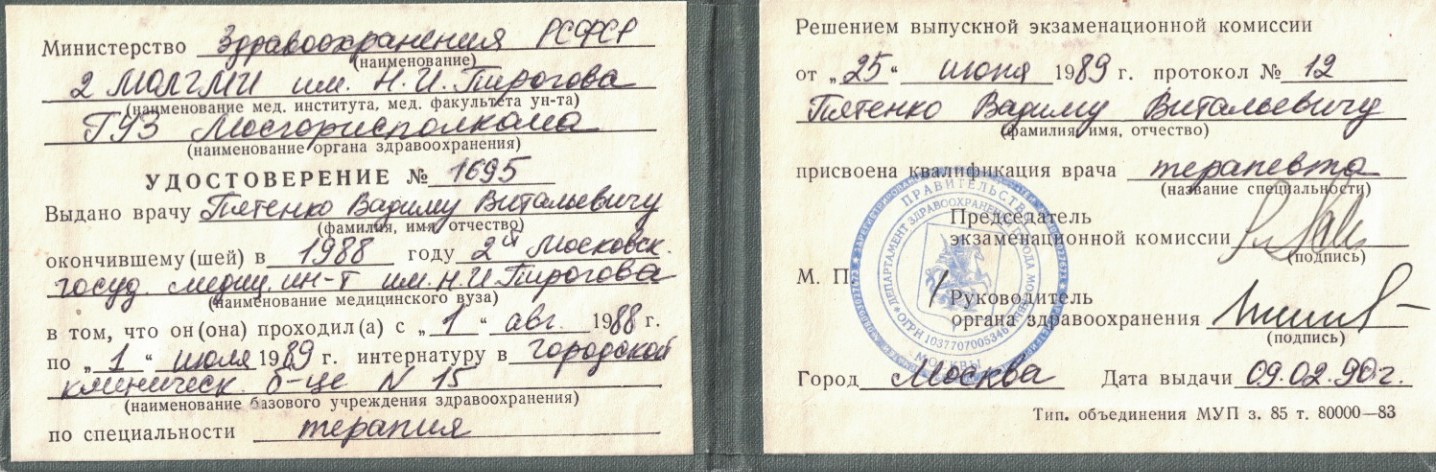 Министерство Здравоохранения РСФСР
(наименование)
2 МОЛГМИ им. Н.И.Пирогова
(наименование мед. института, мед. факультета ун-та)
ГУЗ Мосгорисполкома
(наименование органа здравоохранения)
УДОСТОВЕРЕНИЕ № 1695
Выдано врачу Пятенко Вадиму Витальевичу
(фамилия, имя, отчество)
окончившему (шей) в 1988 году 2й Московск.
госуд. медиц. ин-т им. Н.И.Пирогова
(наименование медицинского вуза)
в том, что он (она) проходил (а) с „1“ авг. 1988 г.
по „1“ июля 1989 г. интернатуру в городской
клиническ. б-це N 15
(наименование базового учреждения здравоохранения)
по специальности терапия
Решением выпускной экзаменационной комиссии
от „25“ июня 1989 г. протокол № 12
Пятенко Вадиму Витальевичу
(фамилия, имя, отчество)
присвоена квалификация врача терапевта
(название специальности)
Председатель
экзаменационной комиссии
(подпись)
М. П.
Руководитель
органа здравоохранения
(подпись)
Город Москва Дата выдачи 09.02.90г.
Тип. объединения МУП з. 85 т. 80000—83
ПРАВИТЕЛЬСТВО МОСКВЫ
ДЕПАРТАМЕНТ ЗДРАВООХРАНЕНИЯ ГОРОДА МОСКВЫ
ОГРН 1037707005346